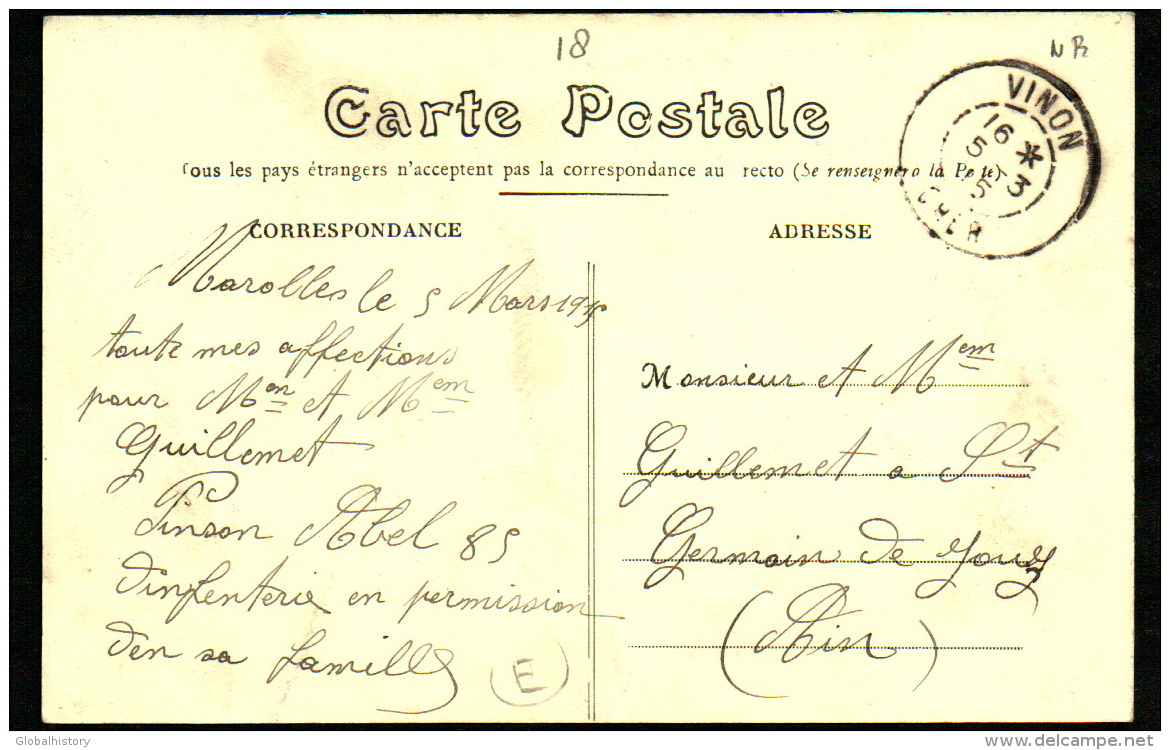 18
NR
Carte Postale
Tous les pays étrangers n'acceptent pas la correspondance au recto (Se renseigner à la Poste)
VINON
16 *
5 - 3
15
CHER
CORRESPONDANCE
ADRESSE
Marolles le 5 Mars 1915
toute mes affections
pour Mon et Mem
Guillemet
Pinson Abel 85
d'infenterie en permission
den sa famille
E
Monsieur et Mem
Guillemet a St
Germain de Jouy
(Ain)
Globalhistory
www.delcampe.net